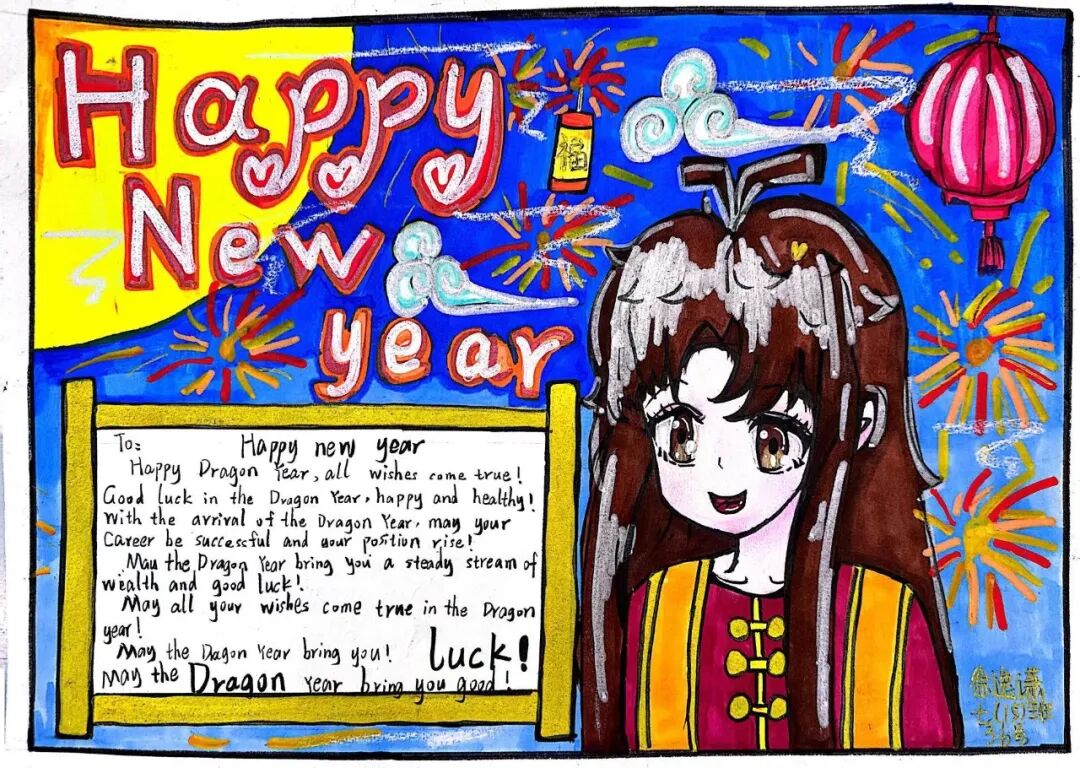 Happy
New
year
福
To:
Happy new year
Happy Dragon Year, all wishes come true!
Good luck in the Dragon Year, happy and healthy!
With the arrival of the Dragon Year, may your
Career be successful and your position rise!
May the Dragon Year bring you a steady stream of
wealth and good luck!
May all your wishes come true in the Dragon
year!
May the Dagon Year bring you! luck!
May the Dragon Year bring you good!
七(15)班